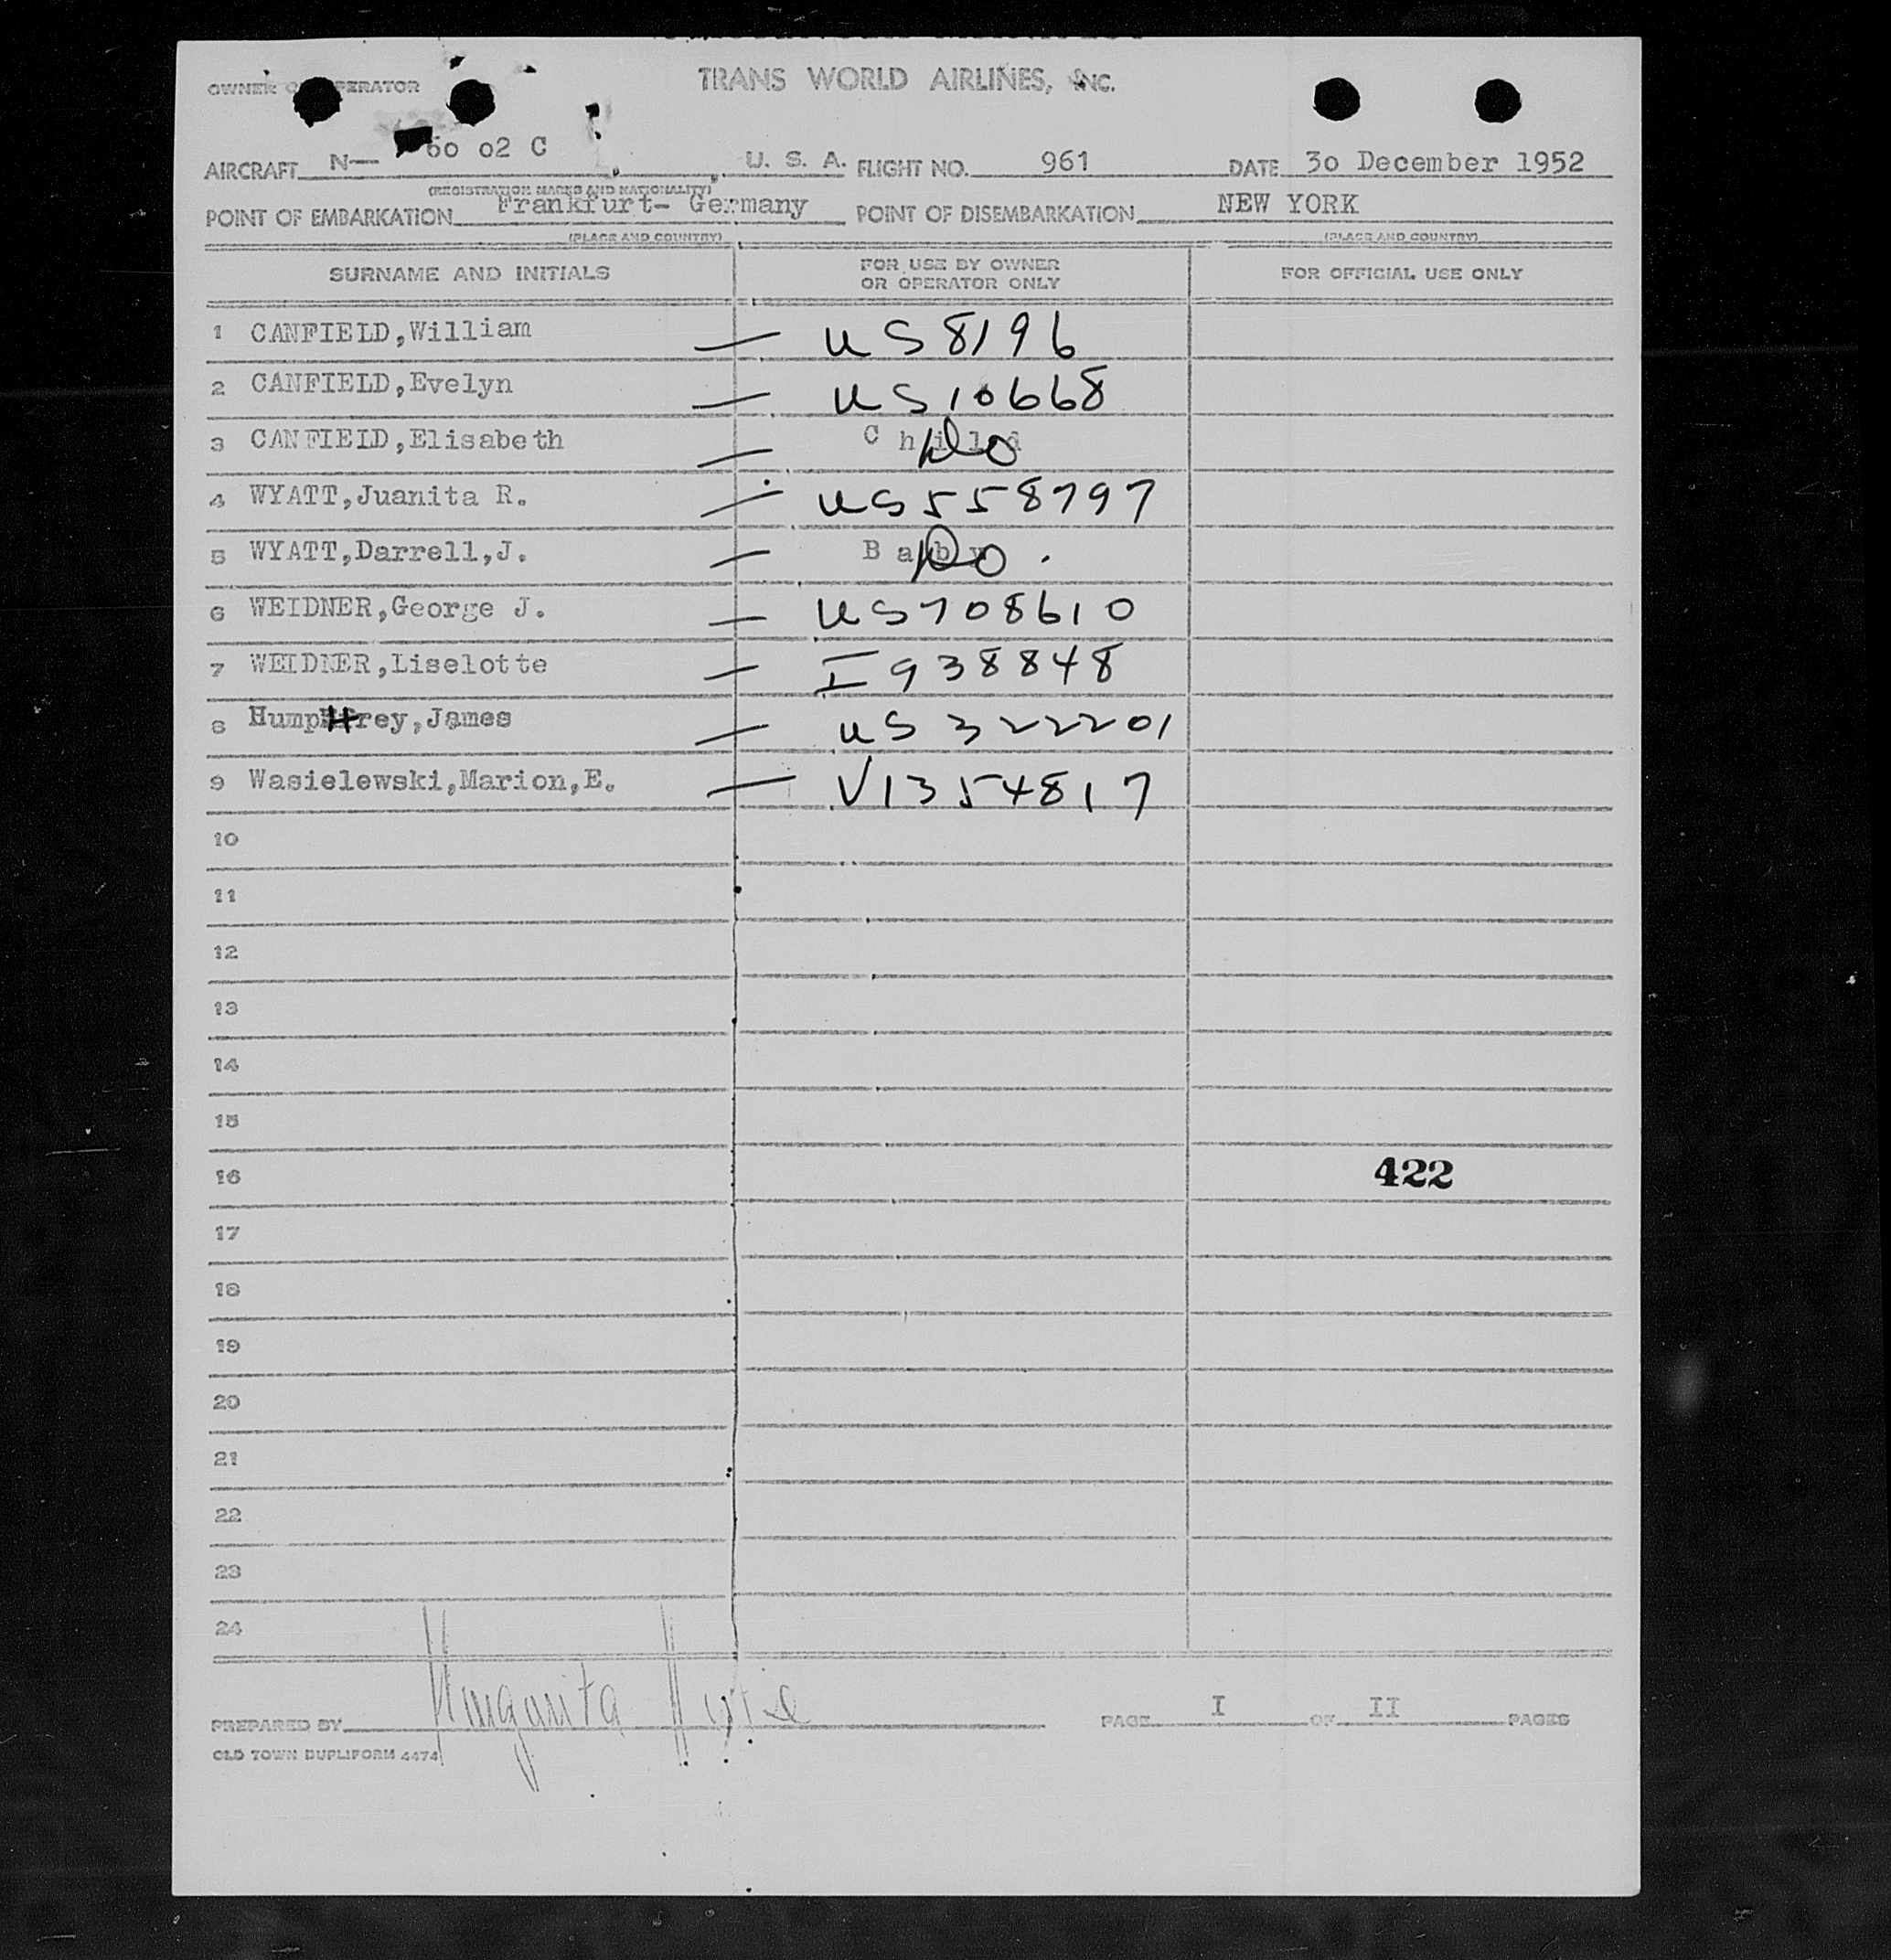 OWNER O PERATOR TRANS WORLD AIRLINES, INC.
AIRCRAFT N— 60 02 C U. S. A. FLIGHT NO. 961 DATE 30 December 1952
(REGISTRATION MARKS AND NATIONALITY)
POINT OF EMBARKATION Frankfurt- Germany POINT OF DISEMBARKATION NEW YORK
(PLACE AND COUNTRY) (PLACE AND COUNTRY)
SURNAME AND INITIALS FOR USE BY OWNER OR OPERATOR ONLY FOR OFFICIAL USE ONLY
1 CANFIELD,William — US 8196
2 CANFIELD,Evelyn — US 10668
3 CANFIEID,Elisabeth — Child Do
4 WYATT,Juanita R. — US 558797
5 WYATT,Darrell,J. — Baby Do.
6 WEIDNER,George J. — US 708610
7 WEIDNER,Liselotte — I 938848
8 Humphrey,James — US 322201
9 Wasielewski,Marion,E. — V1354817
10
11
12
13
14
15
16 422
17
18
19
20
21
22
23
24
PREPARED BY Margarita PAGE I OF II PAGES
OLD TOWN DUPLIFORM 4474